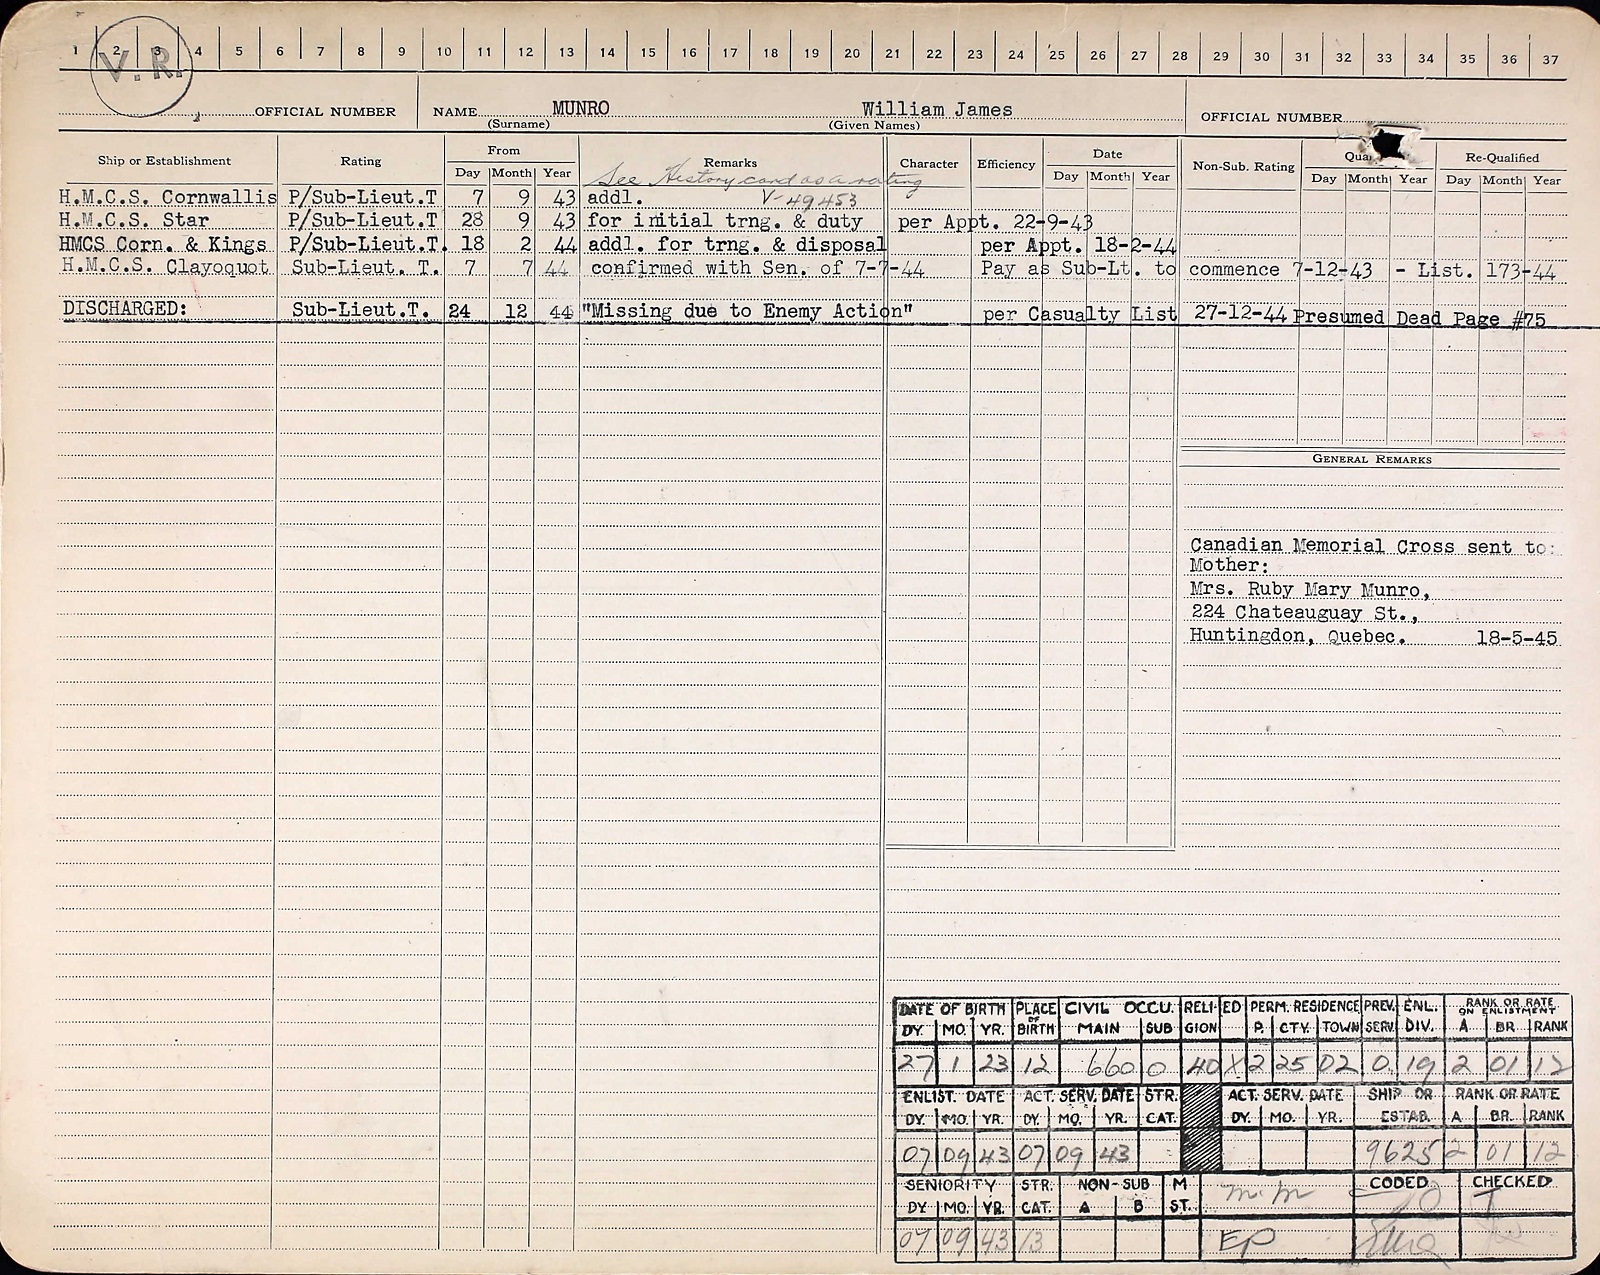 1 2 3 4 5 6 7 8 9 10 11 12 13 14 15 16 17 18 19 20 21 22 23 24 25 26 27 28 29 30 31 32 33 34 35 36 37
V.R.
OFFICIAL NUMBER NAME MUNRO William James OFFICIAL NUMBER
(Surname) (Given Names)
Ship or Establishment Rating From Remarks Character Efficiency Date Non-Sub. Rating Qua Re-Qualified
Day Month Year Day Month Year Day Month Year Day Month Year
See History card as a rating
H.M.C.S. Cornwallis P/Sub-Lieut.T 7 9 43 addl. V-49453
H.M.C.S. Star P/Sub-Lieut.T 28 9 43 for initial trng. & duty per Appt. 22-9-43
HMCS Corn. & Kings P/Sub-Lieut.T. 18 2 44 addl. for trng. & disposal per Appt. 18-2-44
H.M.C.S. Clayoquot Sub-Lieut. T. 7 7 44 confirmed with Sen. of 7-7-44 Pay as Sub-Lt. to commence 7-12-43 - List. 173-44
DISCHARGED: Sub-Lieut.T. 24 12 44 "Missing due to Enemy Action" per Casualty List 27-12-44 Presumed Dead Page #75
GENERAL REMARKS
Canadian Memorial Cross sent to:
Mother:
Mrs. Ruby Mary Munro,
224 Chateauguay St.,
Huntingdon, Quebec. 18-5-45
DATE OF BIRTH PLACE OF BIRTH CIVIL OCCU. RELIGION ED PERM. RESIDENCE PREV. SERV. ENL. DIV. RANK OR RATE ON ENLISTMENT
DY. MO. YR. MAIN SUB P. CTY. TOWN A BR. RANK
27 1 23 12 660 0 40 X 2 25 02 0 19 2 01 12
ENLIST. DATE ACT. SERV. DATE STR. CAT. ACT. SERV. DATE SHIP OR ESTAB. RANK OR RATE
DY. MO. YR. DY. MO. YR. DY. MO. YR. A BR. RANK
07 09 43 07 09 43 9625 2 01 12
SENIORITY STR. CAT. NON-SUB M ST. m.m CODED CHECKED
DY. MO. YR. A B
07 09 43 13 EP